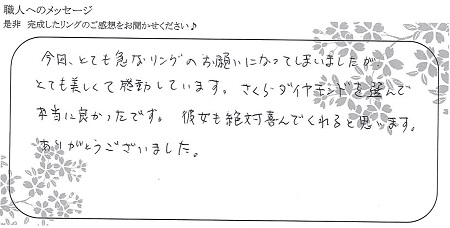 職人へのメッセージ
是非 完成したリングのご感想をお聞かせください♪
今回、とても急なリングのお願いになってしまいましたが、
とても美しくて感動しています。さくらダイヤモンドを選んで
本当に良かったです。彼女も絶対喜んでくれると思います。
ありがとうございました。